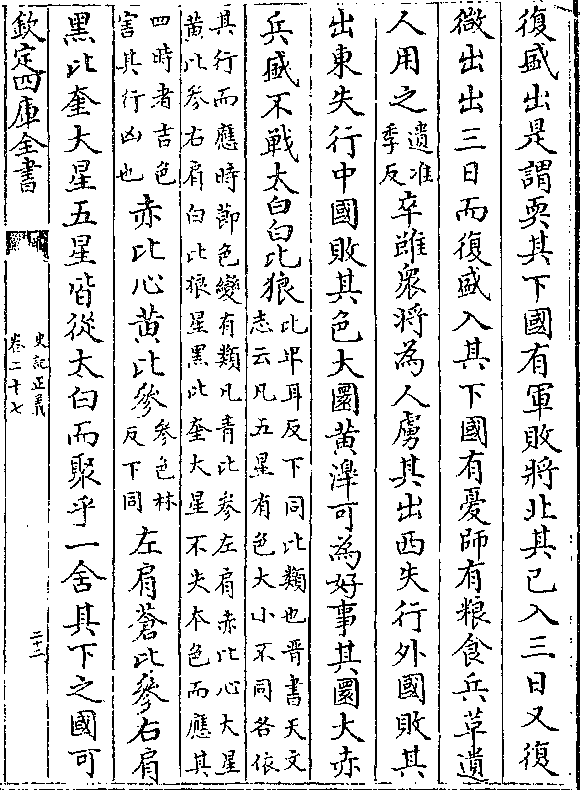 復盛出是謂耎其下國有軍敗將北其已入三日又復
微出出三日而復盛入其下國有憂師有粮食兵革遺
人用之遺准
季反卒雖衆將為人虜其出西失行外國敗其
出東失行中國敗其色大圜黄滜可為好事其圜大赤
兵盛不戰太白白比狼比卑耳反下同比類也晉書天文
志云凡五星有色大小不同各依
其行而應時節色變有類凡青比參左肩赤比心大星
黄比參右肩白比狼星黑比奎大星不失本色而應其
四時者吉色
害其行凶也赤比心黄比參參色林
反下同左肩蒼比參右肩
黑比奎大星五星皆從太白而聚乎一舍其下之國可
欽定四庫全書
史記正義
卷二十七
二十二